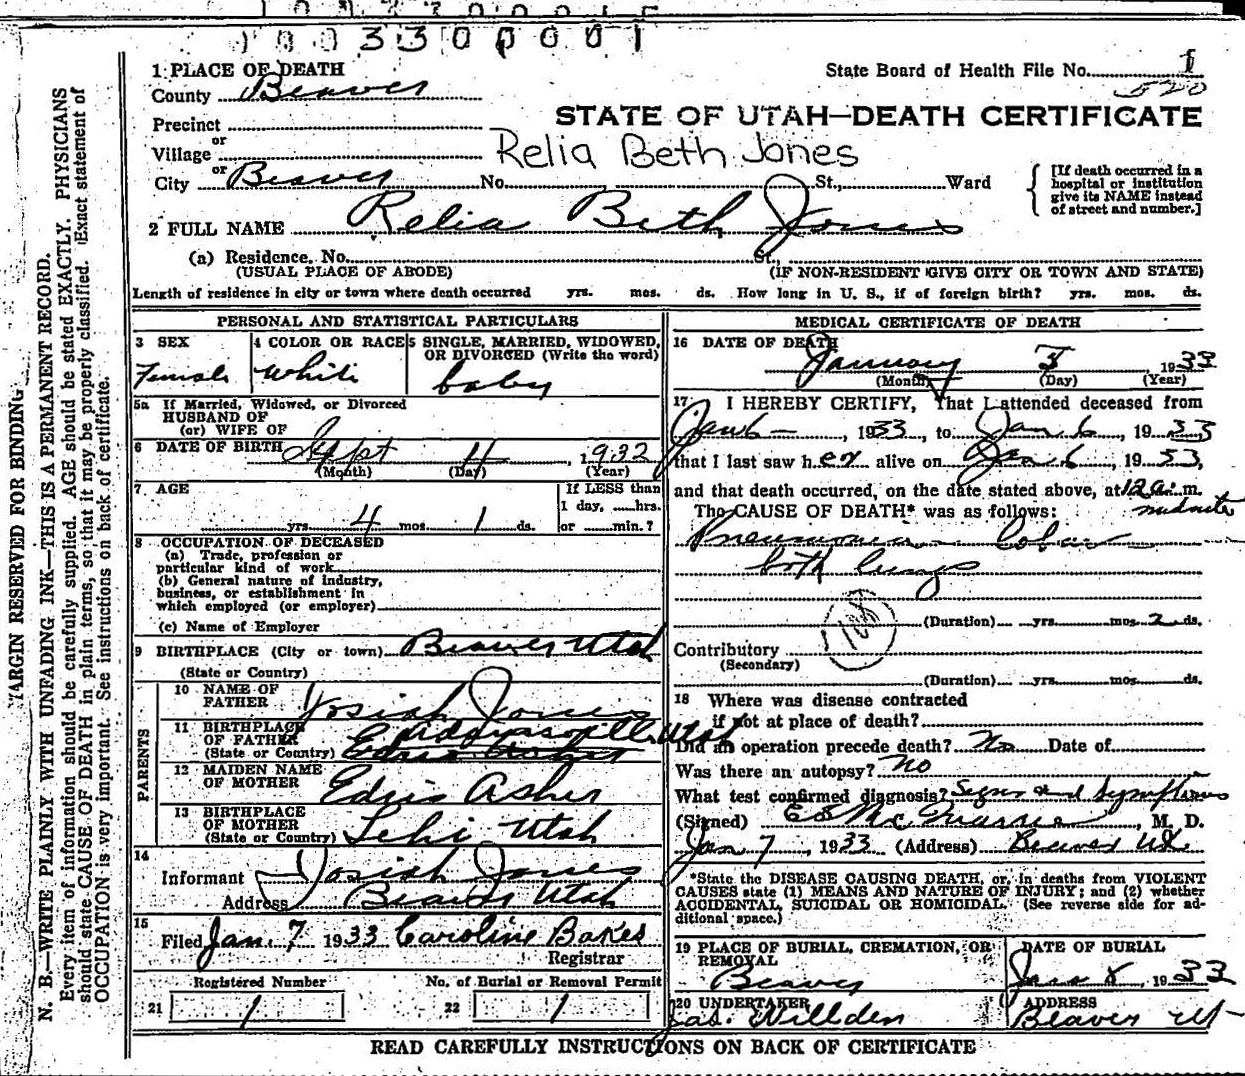 1003300001
1 PLACE OF DEATH
State Board of Health File No. 1
520
County Beaver
STATE OF UTAH—DEATH CERTIFICATE
Precinct
or
Village
Relia Beth Jones
or
City Beaver No. St., Ward
[If death occurred in a hospital or institution give its NAME instead of street and number.]
2 FULL NAME Relia Beth Jones
(a) Residence. No. St.,
(USUAL PLACE OF ABODE) (IF NON-RESIDENT GIVE CITY OR TOWN AND STATE)
Length of residence in city or town where death occurred yrs. mos. ds. How long in U. S., if of foreign birth? yrs. mos. ds.
PERSONAL AND STATISTICAL PARTICULARS
3 SEX
Female
4 COLOR OR RACE
White
5 SINGLE, MARRIED, WIDOWED,
OR DIVORCED (Write the word)
baby
5a If Married, Widowed, or Divorced
HUSBAND OF
(or) WIFE OF
6 DATE OF BIRTH Sept 4 1932
(Month) (Day) (Year)
7 AGE
yrs. 4 mos. 1 ds.
If LESS than
1 day, hrs.
or min.?
8 OCCUPATION OF DECEASED
(a) Trade, profession or
particular kind of work
(b) General nature of industry,
business, or establishment in
which employed (or employer)
(c) Name of Employer
9 BIRTHPLACE (City or town) Beaver Utah
(State or Country)
PARENTS
10 NAME OF
FATHER Josiah Jones
11 BIRTHPLACE
OF FATHER
(State or Country) Utah
Edris Asher
12 MAIDEN NAME
OF MOTHER Edris Asher
13 BIRTHPLACE
OF MOTHER
(State or Country) Lehi Utah
14
Informant Josiah Jones
Address Beaver Utah
15
Filed Jan. 7 1933 Caroline Bakes
Registrar
Registered Number
21 1
No. of Burial or Removal Permit
22 1
MEDICAL CERTIFICATE OF DEATH
16 DATE OF DEATH
January 1933
(Month) (Day) (Year)
17 I HEREBY CERTIFY, That I attended deceased from
Jan 6, 1933, to Jan 6, 1933
that I last saw her alive on Jan 6, 1933,
and that death occurred, on the date stated above, at 12 a. m.
The CAUSE OF DEATH* was as follows: midnite
Pneumonia — lobar
both lungs
108
(Duration) yrs. mos. 2 ds.
Contributory
(Secondary)
(Duration) yrs. mos. ds.
18 Where was disease contracted
if not at place of death?
Did an operation precede death? No Date of
Was there an autopsy? no
What test confirmed diagnosis? Signs and Symptoms
(Signed) M. D.
Jan 7, 1933 (Address) Beaver Ut.
*State the DISEASE CAUSING DEATH, or, in deaths from VIOLENT
CAUSES state (1) MEANS AND NATURE OF INJURY; and (2) whether
ACCIDENTAL, SUICIDAL OR HOMICIDAL. (See reverse side for ad-
ditional space.)
19 PLACE OF BURIAL, CREMATION, OR
REMOVAL
Beaver
DATE OF BURIAL
Jan 8, 1933
20 UNDERTAKER
Jas. Willden
ADDRESS
Beaver Ut
READ CAREFULLY INSTRUCTIONS ON BACK OF CERTIFICATE
MARGIN RESERVED FOR BINDING
N. B.—WRITE PLAINLY WITH UNFADING INK—THIS IS A PERMANENT RECORD.
Every item of information should be carefully supplied. AGE should be stated EXACTLY. PHYSICIANS
should state CAUSE OF DEATH in plain terms, so that it may be properly classified. Exact statement of
OCCUPATION is very important. See instructions on back of certificate.